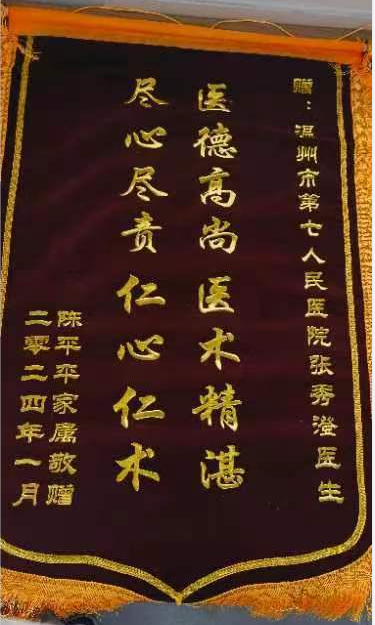 赠：温州市第七人民医院张秀澄医生
医德高尚医术精湛
尽心尽责仁心仁术
陈平平家属敬赠
二零二四年一月